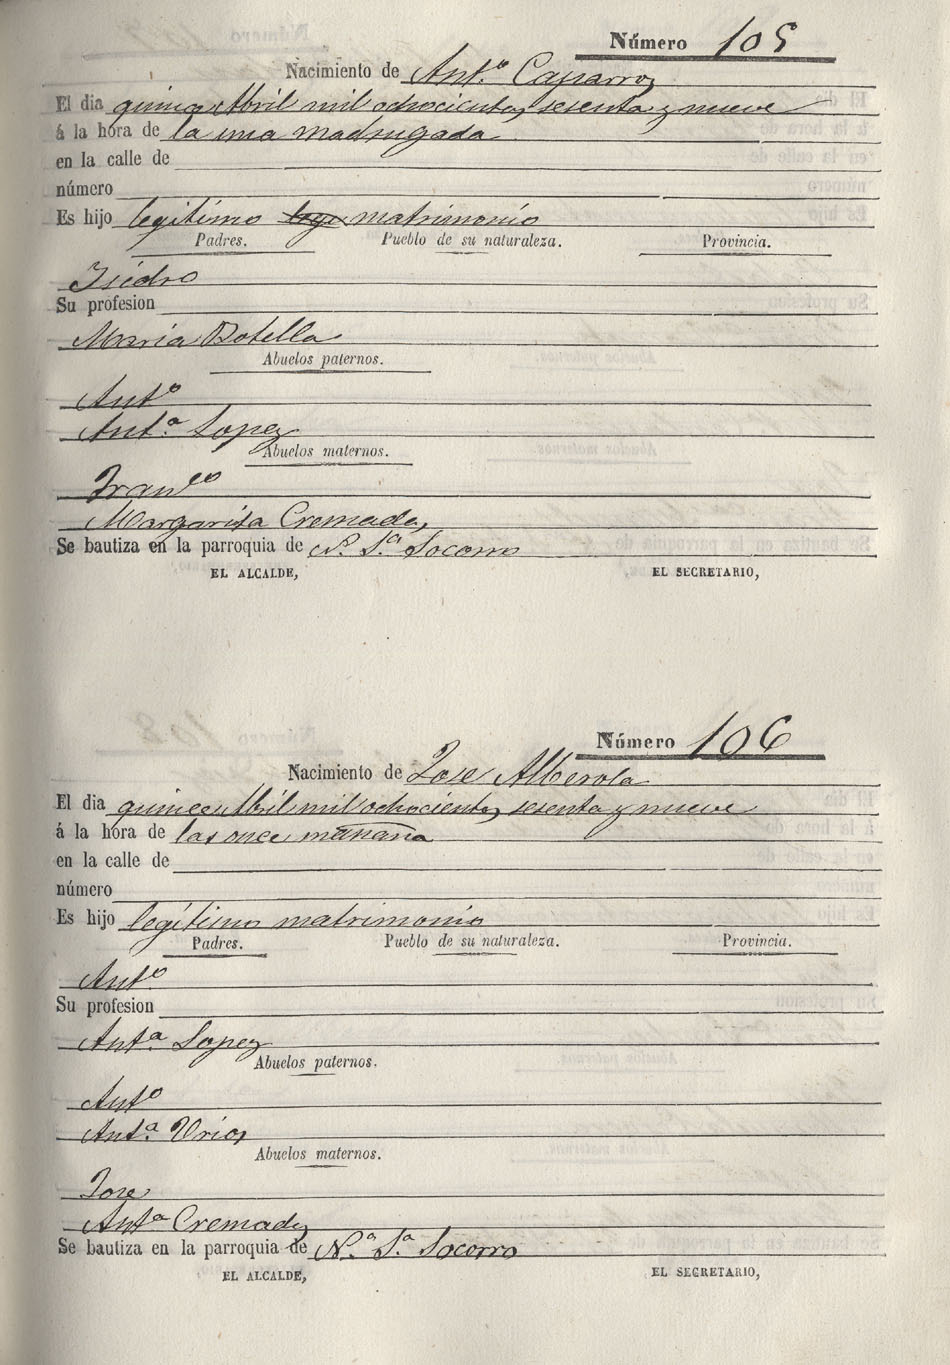 Número 105
Nacimiento de Ant.º Caparroz
El dia quince Abril mil ochocientos sesenta y nueve
á la hora de la una madrugada
en la calle de
número
Es hijo legitimo matrimonio
Padres. Pueblo de su naturaleza. Provincia.
Isidro
Su profesion
Maria Botella
Abuelos paternos.
Antº
Ant.ª Lopez
Abuelos maternos.
Franco
Margarita Cremades
Se bautiza en la parroquia de N.ª S.ª Socorro
EL ALCALDE, EL SECRETARIO,
Número 106
Nacimiento de Jose Alberola
El dia quince Abril mil ochocientos sesenta y nueve
á la hora de las once mañana
en la calle de
número
Es hijo legitimo matrimonio
Padres. Pueblo de su naturaleza. Provincia.
Antº
Su profesion
Ant.ª Lopez
Abuelos paternos.
Antº
Ant.ª Urios
Abuelos maternos.
Jose
Antª Cremades
Se bautiza en la parroquia de N.ª S.ª Socorro
EL ALCALDE, EL SECRETARIO,